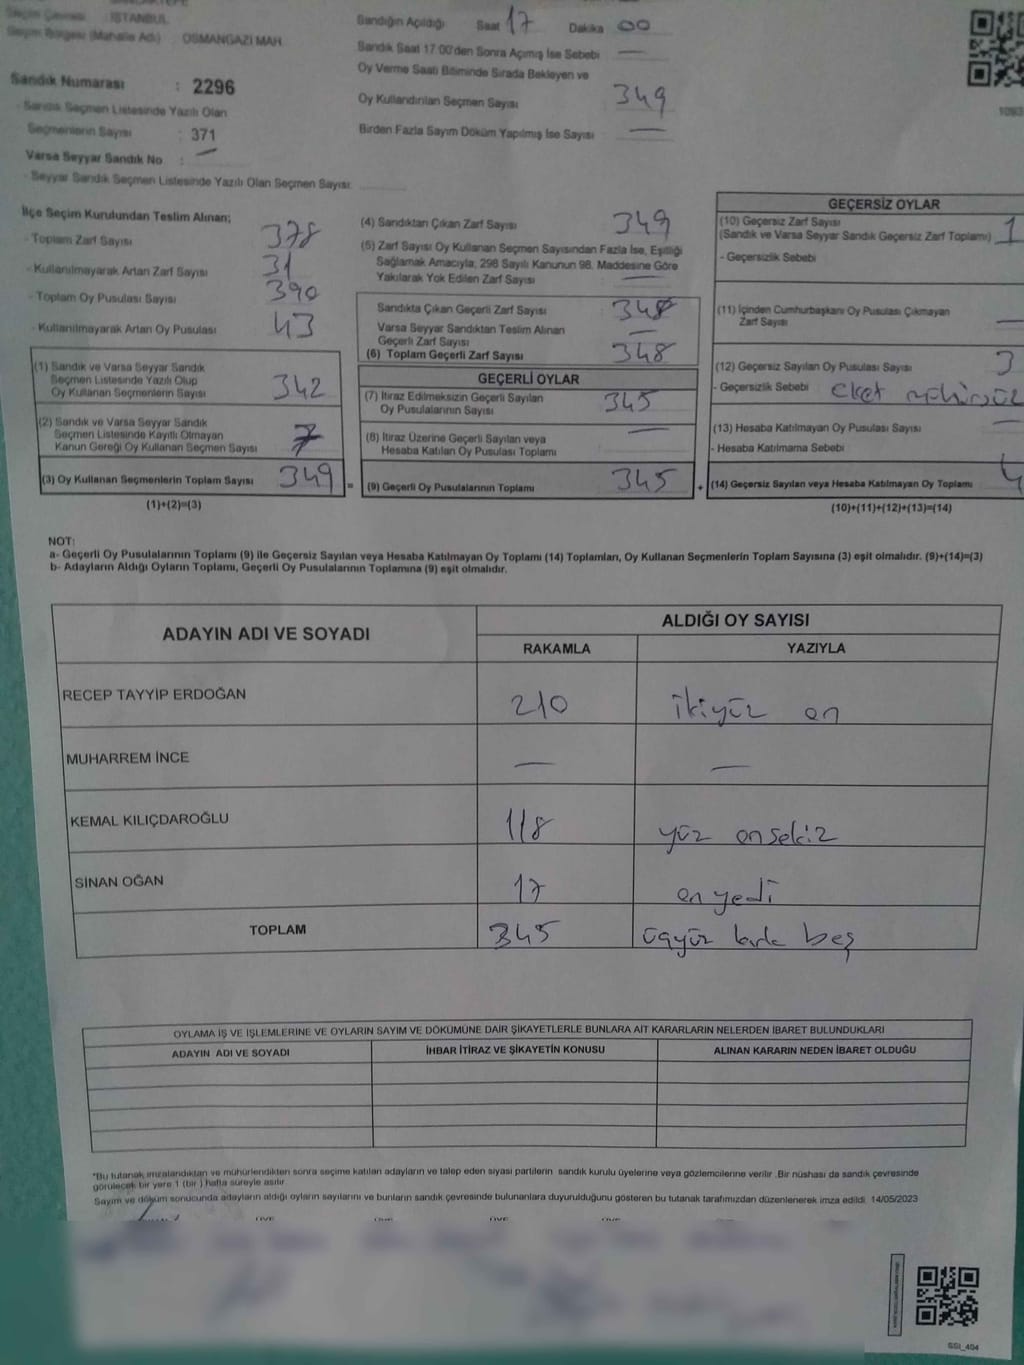 Seçim Çevresi : İSTANBUL
Seçim Bölgesi (Mahalle Adı) : OSMANGAZİ MAH.
Sandık Numarası : 2296
- Sandık Seçmen Listesinde Yazılı Olan
Seçmenlerin Sayısı : 371
Varsa Seyyar Sandık No : —
- Seyyar Sandık Seçmen Listesinde Yazılı Olan Seçmen Sayısı:
Sandığın Açıldığı Saat 17 Dakika 00
Sandık Saat 17:00'den Sonra Açımış İse Sebebi —
Oy Verme Saati Bitiminde Sırada Bekleyen ve
Oy Kullandırılan Seçmen Sayısı 349
Birden Fazla Sayım Döküm Yapılmış İse Sayısı —
İlçe Seçim Kurulundan Teslim Alınan;
- Toplam Zarf Sayısı 378
- Kullanılmayarak Artan Zarf Sayısı 31
- Toplam Oy Pusulası Sayısı 390
- Kullanılmayarak Artan Oy Pusulası 43
(1) Sandık ve Varsa Seyyar Sandık
Seçmen Listesinde Yazılı Olup
Oy Kullanan Seçmenlerin Sayısı 342
(2) Sandık ve Varsa Seyyar Sandık
Seçmen Listesinde Kayıtlı Olmayan
Kanun Gereği Oy Kullanan Seçmen Sayısı 7
(3) Oy Kullanan Seçmenlerin Toplam Sayısı 349 =
(1)+(2)=(3)
(4) Sandıktan Çıkan Zarf Sayısı 349
(5) Zarf Sayısı Oy Kullanan Seçmen Sayısından Fazla İse, Eşitliği
Sağlamak Amacıyla, 298 Sayılı Kanunun 98. Maddesine Göre
Yakılarak Yok Edilen Zarf Sayısı —
Sandıkta Çıkan Geçerli Zarf Sayısı 348
Varsa Seyyar Sandıktan Teslim Alınan
Geçerli Zarf Sayısı —
(6) Toplam Geçerli Zarf Sayısı 348
GEÇERLİ OYLAR
(7) İtiraz Edilmeksizin Geçerli Sayılan
Oy Pusulalarının Sayısı 345
(8) İtiraz Üzerine Geçerli Sayılan veya
Hesaba Katılan Oy Pusulası Toplamı —
(9) Geçerli Oy Pusulalarının Toplamı 345 +
GEÇERSİZ OYLAR
(10) Geçersiz Zarf Sayısı
(Sandık ve Varsa Seyyar Sandık Geçersiz Zarf Toplamı) 1
- Geçersizlik Sebebi
(11) İçinden Cumhurbaşkanı Oy Pusulası Çıkmayan
Zarf Sayısı —
(12) Geçersiz Sayılan Oy Pusulası Sayısı 3
- Geçersizlik Sebebi
(13) Hesaba Katılmayan Oy Pusulası Sayısı —
- Hesaba Katılmama Sebebi
(14) Geçersiz Sayılan veya Hesaba Katılmayan Oy Toplamı 4
(10)+(11)+(12)+(13)=(14)
NOT:
a- Geçerli Oy Pusulalarının Toplamı (9) ile Geçersiz Sayılan veya Hesaba Katılmayan Oy Toplamı (14) Toplamları, Oy Kullanan Seçmenlerin Toplam Sayısına (3) eşit olmalıdır. (9)+(14)=(3)
b- Adayların Aldığı Oyların Toplamı, Geçerli Oy Pusulalarının Toplamına (9) eşit olmalıdır.
ADAYIN ADI VE SOYADI ALDIĞI OY SAYISI
RAKAMLA YAZIYLA
RECEP TAYYİP ERDOĞAN 210 ikiyüz on
MUHARREM İNCE — —
KEMAL KILIÇDAROĞLU 118 yüz onsekiz
SİNAN OĞAN 17 on yedi
TOPLAM 345 üçyüz kırk beş
OYLAMA İŞ VE İŞLEMLERİNE VE OYLARIN SAYIM VE DÖKÜMÜNE DAİR ŞİKAYETLERLE BUNLARA AİT KARARLARIN NELERDEN İBARET BULUNDUKLARI
ADAYIN ADI VE SOYADI İHBAR İTİRAZ VE ŞİKAYETİN KONUSU ALINAN KARARIN NEDEN İBARET OLDUĞU
"Bu tutanak imzalandıktan ve mühürlendikten sonra seçime katılan adayların ve talep eden siyasi partilerin sandık kurulu üyelerine veya gözlemcilerine verilir .Bir nüshası da sandık çevresinde
görülecek bir yere 1 (bir ) hafta süreyle asılır.
Sayım ve döküm sonucunda adayların aldığı oyların sayılarını ve bunların sandık çevresinde bulunanlara duyurulduğunu gösteren bu tutanak tarafımızdan düzenlenerek imza edildi. 14/05/2023
SSI_404